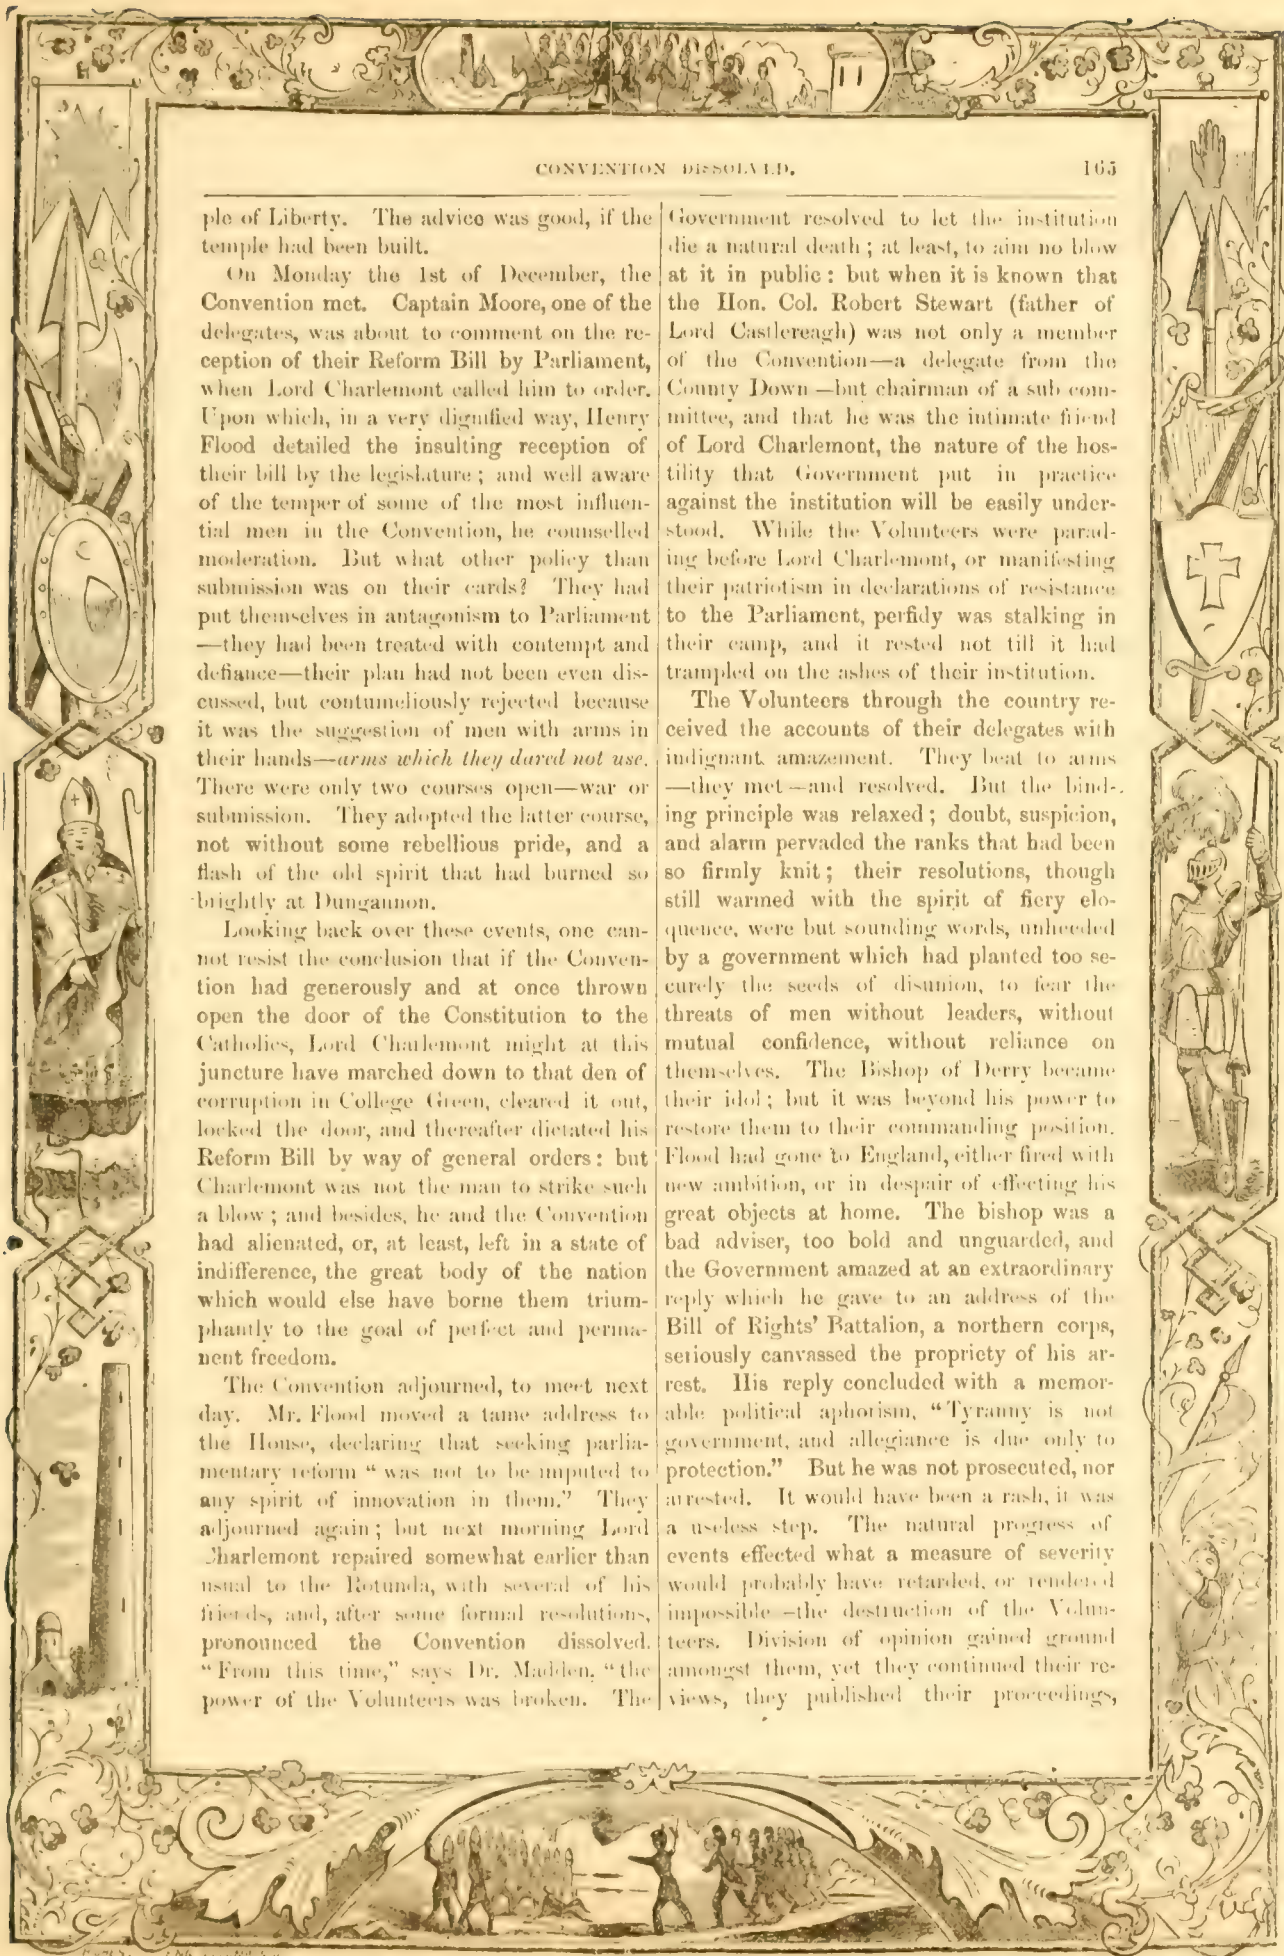 CONVENTION DISSOLVED.
165
ple of Liberty. The advice was good, if the
temple had been built.
On Monday the 1st of December, the
Convention met. Captain Moore, one of the
delegates, was about to comment on the re-
ception of their Reform Bill by Parliament,
when Lord Charlemont called him to order.
Upon which, in a very dignified way, Henry
Flood detailed the insulting reception of
their bill by the legislature; and well aware
of the temper of some of the most influen-
tial men in the Convention, he counselled
moderation. But what other policy than
submission was on their cards? They had
put themselves in antagonism to Parliament
—they had been treated with contempt and
defiance—their plan had not been even dis-
cussed, but contumeliously rejected because
it was the suggestion of men with arms in
their hands—arms which they dared not use.
There were only two courses open—war or
submission. They adopted the latter course,
not without some rebellious pride, and a
flash of the old spirit that had burned so
brightly at Dungannon.
Looking back over these events, one can-
not resist the conclusion that if the Conven-
tion had generously and at once thrown
open the door of the Constitution to the
Catholics, Lord Charlemont might at this
juncture have marched down to that den of
corruption in College Green, cleared it out,
locked the door, and thereafter dictated his
Reform Bill by way of general orders: but
Charlemont was not the man to strike such
a blow; and besides, he and the Convention
had alienated, or, at least, left in a state of
indifference, the great body of the nation
which would else have borne them trium-
phantly to the goal of perfect and perma-
nent freedom.
The Convention adjourned, to meet next
day. Mr. Flood moved a tame address to
the House, declaring that seeking parlia-
mentary reform "was not to be imputed to
any spirit of innovation in them." They
adjourned again; but next morning Lord
Charlemont repaired somewhat earlier than
usual to the Rotunda, with several of his
friends, and, after some formal resolutions,
pronounced the Convention dissolved.
"From this time," says Dr. Madden, "the
power of the Volunteers was broken. The
Government resolved to let the institution
die a natural death; at least, to aim no blow
at it in public: but when it is known that
the Hon. Col. Robert Stewart (father of
Lord Castlereagh) was not only a member
of the Convention—a delegate from the
County Down—but chairman of a sub com-
mittee, and that he was the intimate friend
of Lord Charlemont, the nature of the hos-
tility that Government put in practice
against the institution will be easily under-
stood. While the Volunteers were parad-
ing before Lord Charlemont, or manifesting
their patriotism in declarations of resistance
to the Parliament, perfidy was stalking in
their camp, and it rested not till it had
trampled on the ashes of their institution.
The Volunteers through the country re-
ceived the accounts of their delegates with
indignant amazement. They beat to arms
—they met—and resolved. But the bind-
ing principle was relaxed; doubt, suspicion,
and alarm pervaded the ranks that had been
so firmly knit; their resolutions, though
still warmed with the spirit of fiery elo-
quence, were but sounding words, unheeded
by a government which had planted too se-
curely the seeds of disunion, to fear the
threats of men without leaders, without
mutual confidence, without reliance on
themselves. The Bishop of Derry became
their idol; but it was beyond his power to
restore them to their commanding position.
Flood had gone to England, either fired with
new ambition, or in despair of effecting his
great objects at home. The bishop was a
bad adviser, too bold and unguarded, and
the Government amazed at an extraordinary
reply which he gave to an address of the
Bill of Rights' Battalion, a northern corps,
seriously canvassed the propriety of his ar-
rest. His reply concluded with a memor-
able political aphorism, "Tyranny is not
government, and allegiance is due only to
protection." But he was not prosecuted, nor
arrested. It would have been a rash, it was
a useless step. The natural progress of
events effected what a measure of severity
would probably have retarded, or rendered
impossible—the destruction of the Volun-
teers. Division of opinion gained ground
amongst them, yet they continued their re-
views, they published their proceedings,